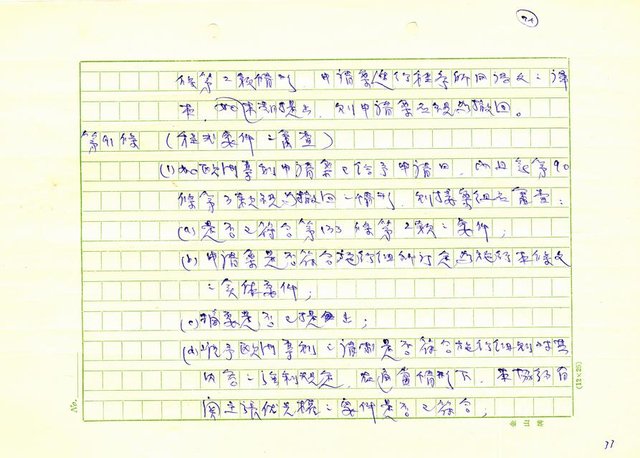 條第二款情形,申請案進行程序所用語文之譯
本,如未能提出,則申請案應視為撤回。
第91條 (程式要件之審查)
(1)如歐洲專利申請案已給予申請日,而且無第90
條第3款視為撤回之情形,則接案組應審查:
(a)是否已符合第133條第2款之要件;
(b)申請案是否符合施行細則訂定為施行本條文
之實体要件;
(c)摘要是否已提出;
(d)授予歐洲專利之請求是否符合施行細則對其
內容之強制規定,於適當情形下,本協約有
關主張優先權之要件是否已符合,
No.
(12×25)
77